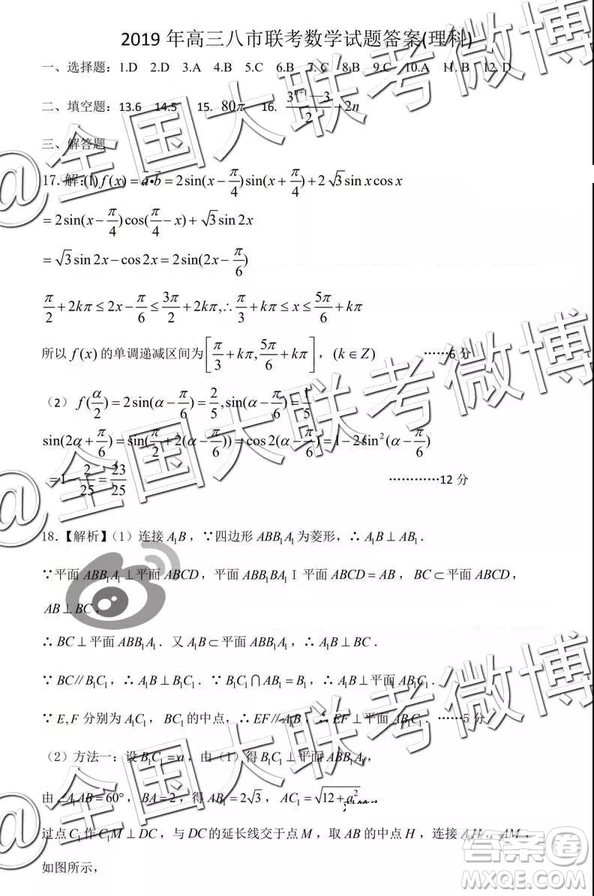 2019 年高三八市联考数学试题答案(理科)
一、选择题：1.D 2.D 3.A 4.B 5.C 6.B 7.C 8.B 9.C 10.A 11.B 12.D
二、填空题：13.6 14.5 15. 80π 16. (3^{n+1}−3)/2 −2n
三、解答题
17. 解:(1) f(x)=a•b=2sin(x−π/4)sin(x+π/4)+2√3 sin x cos x
=2sin(x−π/4)cos(π/4−x)+√3 sin2x
=√3 sin2x−cos2x=2sin(2x−π/6)
π/2+2kπ≤2x−π/6≤3π/2+2kπ,∴π/3+kπ≤x≤5π/6+kπ
所以 f(x) 的单调递减区间为[π/3+kπ,5π/6+kπ]，(k∈Z) ……6 分
（2） f(α/2)=2sin(α−π/6)=2/5,sin(α−π/6)=1/5
sin(2α+π/6)=sin(π/2+2α−π/3)=cos2(α−π/6)=1−2sin²(α−π/6)
=1−2/25=23/25 …………12 分
18.【解析】（1）连接 A₁B，∵四边形 ABB₁A₁ 为菱形，∴A₁B⊥AB₁.
∵平面 ABB₁A₁⊥平面 ABCD，平面 ABB₁BA₁ I 平面 ABCD=AB，BC⊂平面 ABCD，
AB⊥BC，
∴BC⊥平面 ABB₁A₁．又 A₁B⊂平面 ABB₁A₁，∴A₁B⊥BC．
∵BC∥B₁C₁，∴A₁B⊥B₁C₁．∵B₁C₁∩AB₁=B₁，∴A₁B⊥平面 AB₁C₁．
∵E,F 分别为 A₁C₁，BC₁ 的中点，∴EF∥A₁B，∴EF⊥平面 AB₁C₁．……5 分
（2）方法一：设 B₁C₁=a，由（1）得 B₁C₁⊥平面 ABB₁A₁，
由∠A₁AB=60°，BA=2，得 AB₁=2√3，AC₁=√12+a²
过点 C₁ 作 C₁M⊥DC，与 DC 的延长线交于点 M，取 AB 的中点 H，连接 A₁H，AM，
如图所示，
@全国大联考微博
@全国大联考微博
@全国大联考微博
答案卷